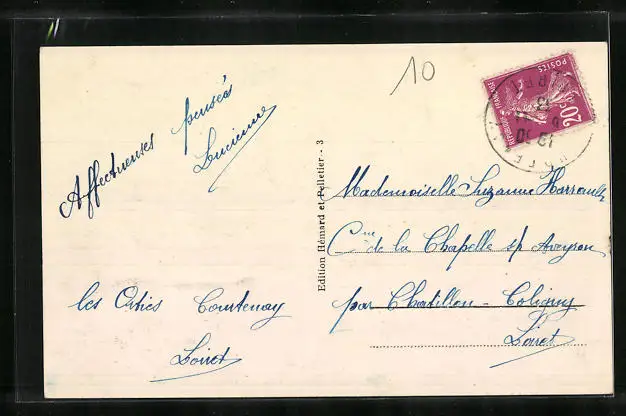 Affectueuses pensées
Lucienne
les Orties Courtenay
Loiret
Edition Hémard et Pelletier - 3
10
POSTES
20c
REPUBLIQUE FRANÇAISE
13
Mademoiselle Suzanne Harrault
Cne de la Chapelle s/ Aveyron
par Chatillon - Coligny
Loiret